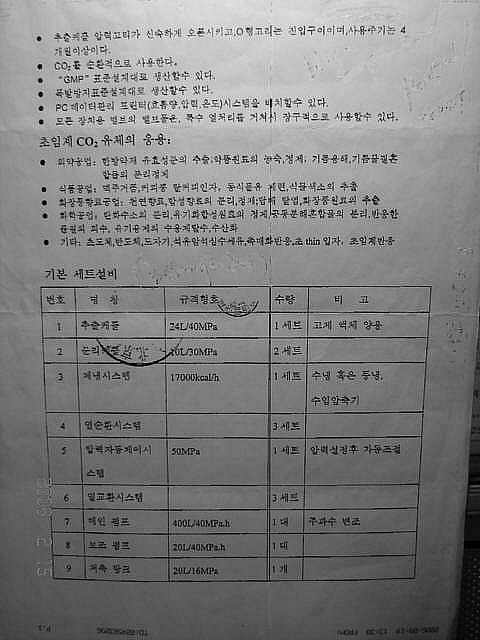 • 추출커플 압력고리가 신속하게 오픈시키고,O형고리는 진입구이이며,사용주기는 4
개월이상이다.
• CO₂를 순환적으로 사용한다.
• “GMP” 표준설계대로 생산할수 있다.
• 폭발방지표준설계대로 생산할수 있다.
• PC 데이터관리 프린터(흐름량,압력,온도)시스템을 배치할수 있다.
• 모든 장치용 밸브의 밸브돌은, 특수 열처리를 거쳐서 장구적으로 사용할수 있다.
초임계 CO₂ 유체의 응용:
• 의약공업: 한방약재 유효성분의 추출,약품원료의 농축,정제, 기름용해,기름물질혼
합물의 분리정제
• 식품공업: 맥주거품,커피콩 탈카페인자, 동식물유 제련,식물색소의 추출
• 화장품향료공업: 천연향료,합성향료의 분리,정제,담배 탈염,화장품원료의 추출
• 화학공업: 탄화수소의 분리,유기화합원료의 정제,공동분해혼합물의 분리,반응한
용원의 회수, 유기용제의 수용제탈수,수산화
• 기타: 초도체,반도체,도자기,석유암석심수세유,촉매화반응,초 thin 입자, 초임계반응
기본 세트설비
번호 명 칭 규격형호 수량 비 고
1 추출커플 24L/40MPa 1 세트 고체 액체 양용
2 분리커플 10L/30MPa 2 세트
3 제냉시스템 17000kcal/h 1 세트 수냉 혹은 동냉,
수입압축기
4 열순환시스템 3 세트
5 압력자동제어시 50MPa 1 세트 압력설정후 자동조절
스템
6 열교환시스템 3 세트
7 메인 펌프 400L/40MPa.h 1 대 주파수 변조
8 보조 펌프 20L/40MPa.h 1 대
9 저축 탕크 20L/16MPa 1 개